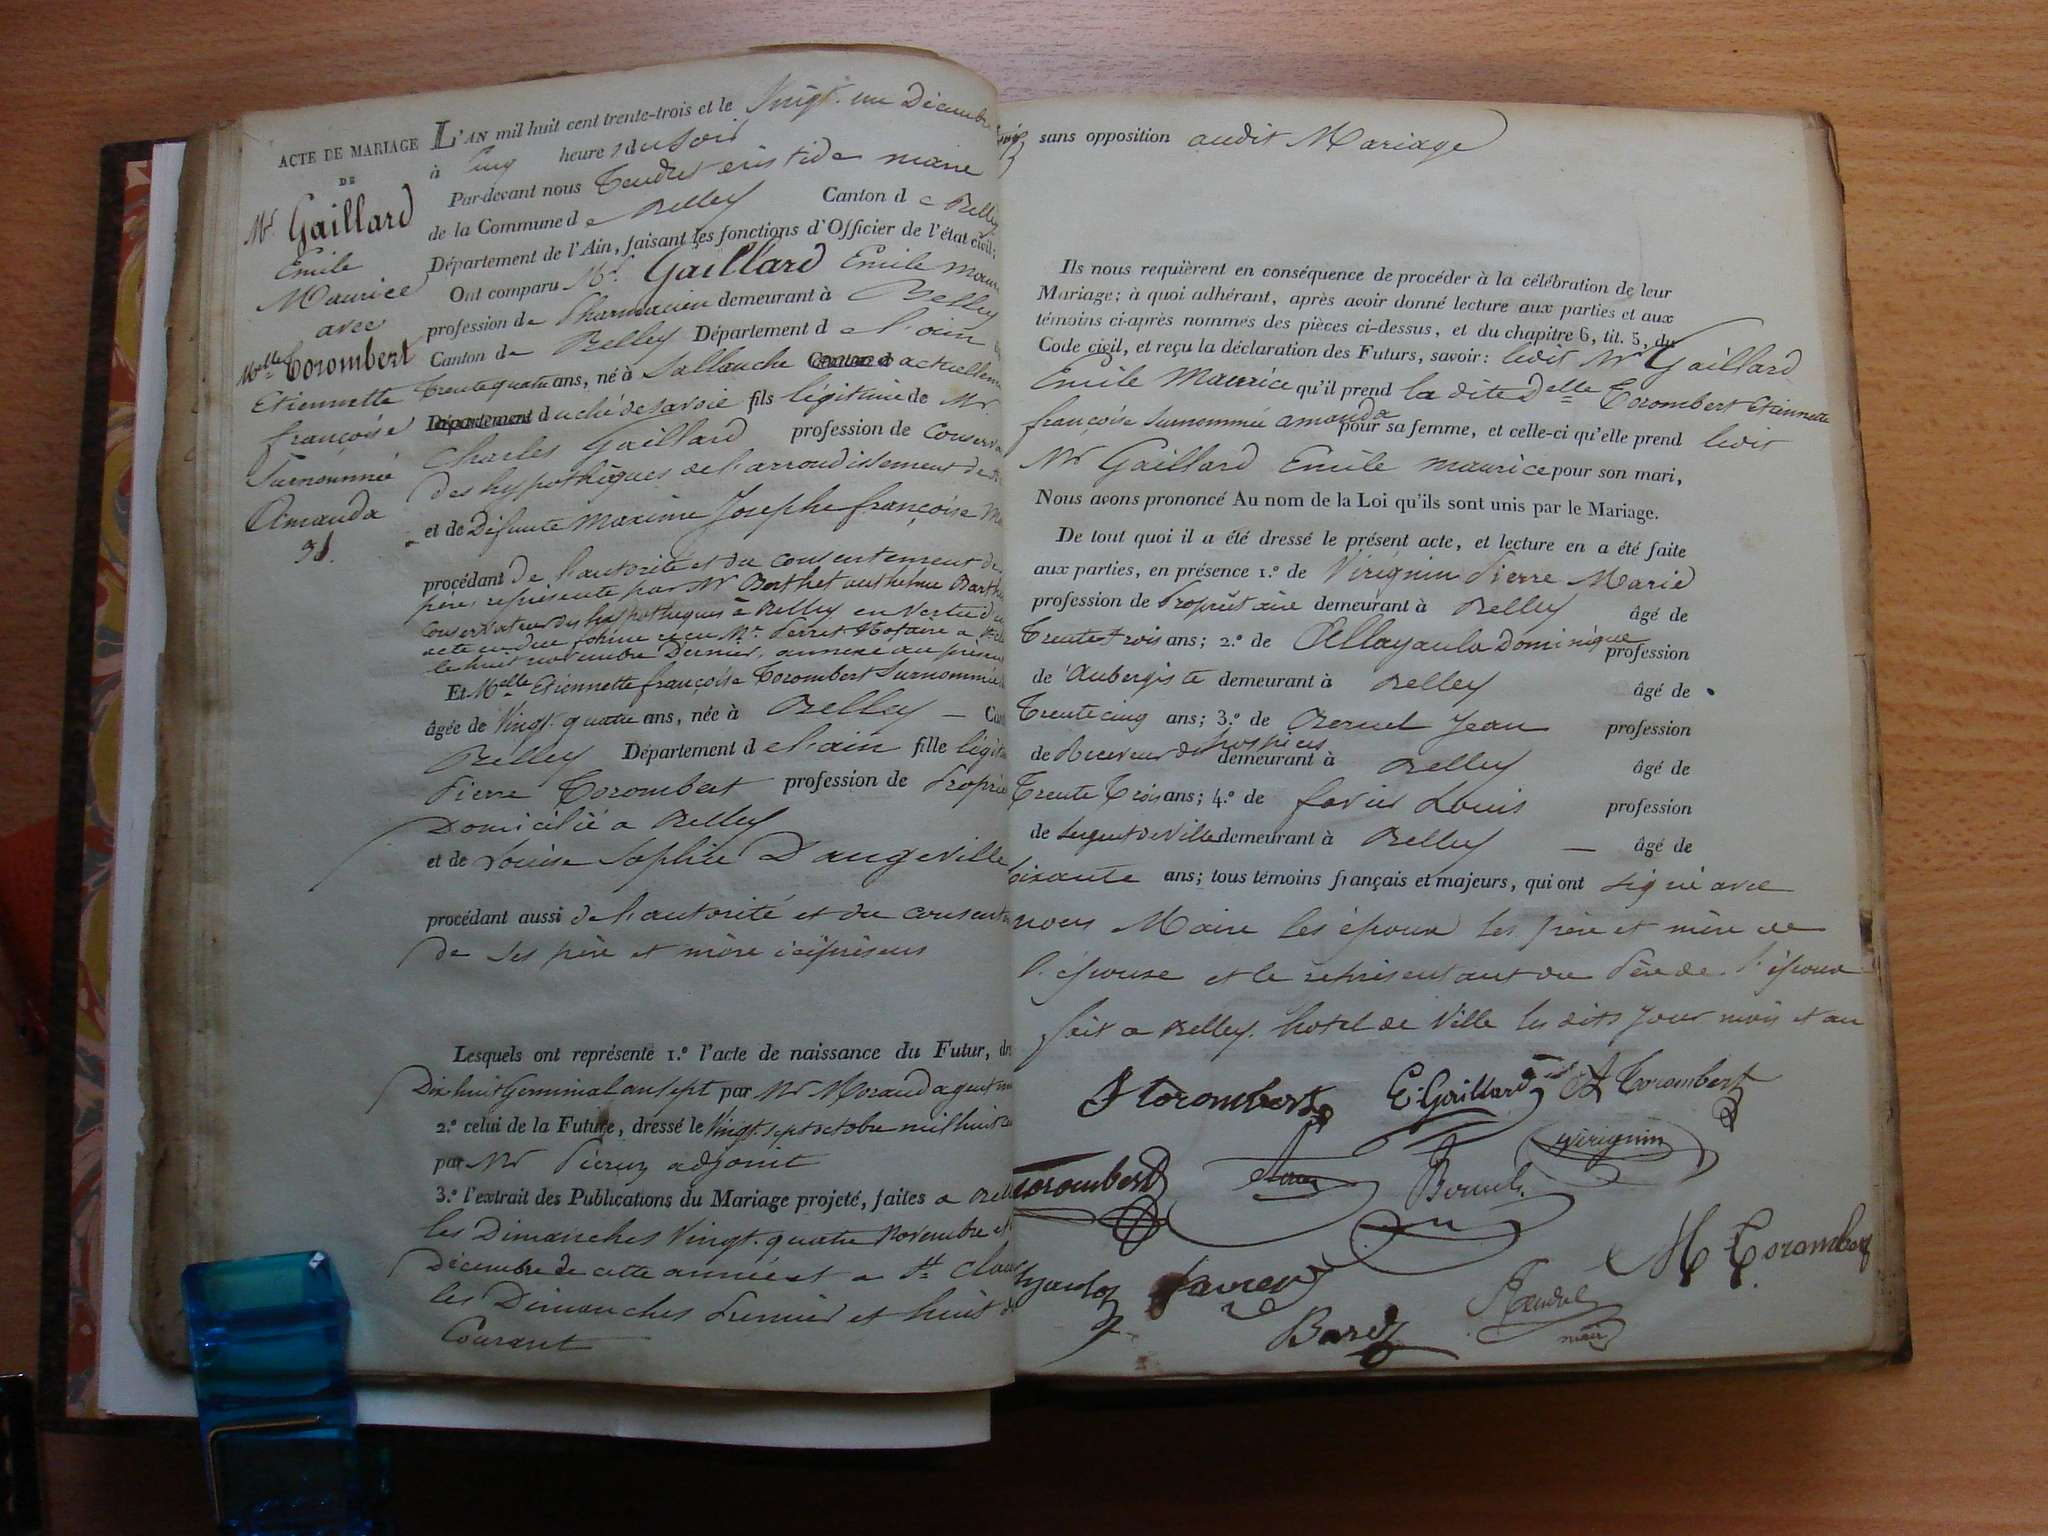 ACTE DE MARIAGE
DE
Mr Gaillard
Emile
Maurice
avec
Melle Corombert
Etiennette
françoise
Surnommée
Amanda
31.
L'AN mil huit cent trente-trois et le Vingt. un Décembre
à Cinq heures du Soir
Par-devant nous maire
de la Commune de Belley Canton de Belley
Département de l'Ain, faisant les fonctions d'Officier de l'état civil;
Ont comparu Mr. Gaillard Emile
profession de Pharmacien demeurant à Belley
Canton de Belley Département de l'ain
trente quatre ans, né à Sallanche Canton d
Département duché de Savoie fils légitime de Mr.
Charles Gaillard profession de
des hypothèques de l'arrondissement de
et de Défunte Maxime Josephe françoise
procédant de l'autorité et du consentement de
père, représenté par Mr Berthet
Conservateur des hypothèques à Belley en vertu
acte en due forme Mr. Perret Notaire a
le huit novembre Dernier, annexé au
Et Melle Etiennette françoise Corombert Surnommée
âgée de Vingt. quatre ans, née à Belley —
Belley Département de l'ain fille
Pierre Corombert profession de
Domicilié a Belley
et de Louise Sophie Dangeville
procédant aussi de l'autorité et du
de ses père et mère
Lesquels ont représenté 1.º l'acte de naissance du Futur,
Dix huit Germinal an sept par Mr Morand agent
2.º celui de la Future, dressé le Vingt. sept octobre mil huit
par Mr adjoint
3.º l'extrait des Publications du Mariage projeté, faites a
les Dimanches Vingt. quatre Novembre et
Décembre de cette année et a St
les Dimanches Premier et huit
Courant
sans opposition audit Mariage
Ils nous requièrent en conséquence de procéder à la célébration de leur
Mariage; à quoi adhérant, après avoir donné lecture aux parties et aux
témoins ci-après nommés des pièces ci-dessus, et du chapitre 6, tit. 5, du
Code civil, et reçu la déclaration des Futurs, savoir: ledit Mr Gaillard
Emile Maurice qu'il prend la dite Delle Corombert Etiennette
françoise Surnommée amanda pour sa femme, et celle-ci qu'elle prend ledit
Mr Gaillard Emile maurice pour son mari,
Nous avons prononcé Au nom de la Loi qu'ils sont unis par le Mariage.
De tout quoi il a été dressé le présent acte, et lecture en a été faite
aux parties, en présence 1.º de Virignin Pierre Marie
profession de Propriétaire demeurant à Belley âgé de
Trente trois ans; 2.º de Dominique profession
de Aubergiste demeurant à Belley âgé de
Trente cinq ans; 3.º de Jean profession
de Receveur des hospices demeurant à Belley âgé de
Trente Trois ans; 4.º de Louis profession
de Sergent de Ville demeurant à Belley — âgé de
ans; tous témoins français et majeurs, qui ont signé avec
nous Maire les époux les père et mère de
l'épouse et le représentant du Père de l'époux
fait a Belley. hotel de Ville les dits jour mois et an
Corombert E. Gaillard A Corombert
Corombert Virignin
M Corombert
maire